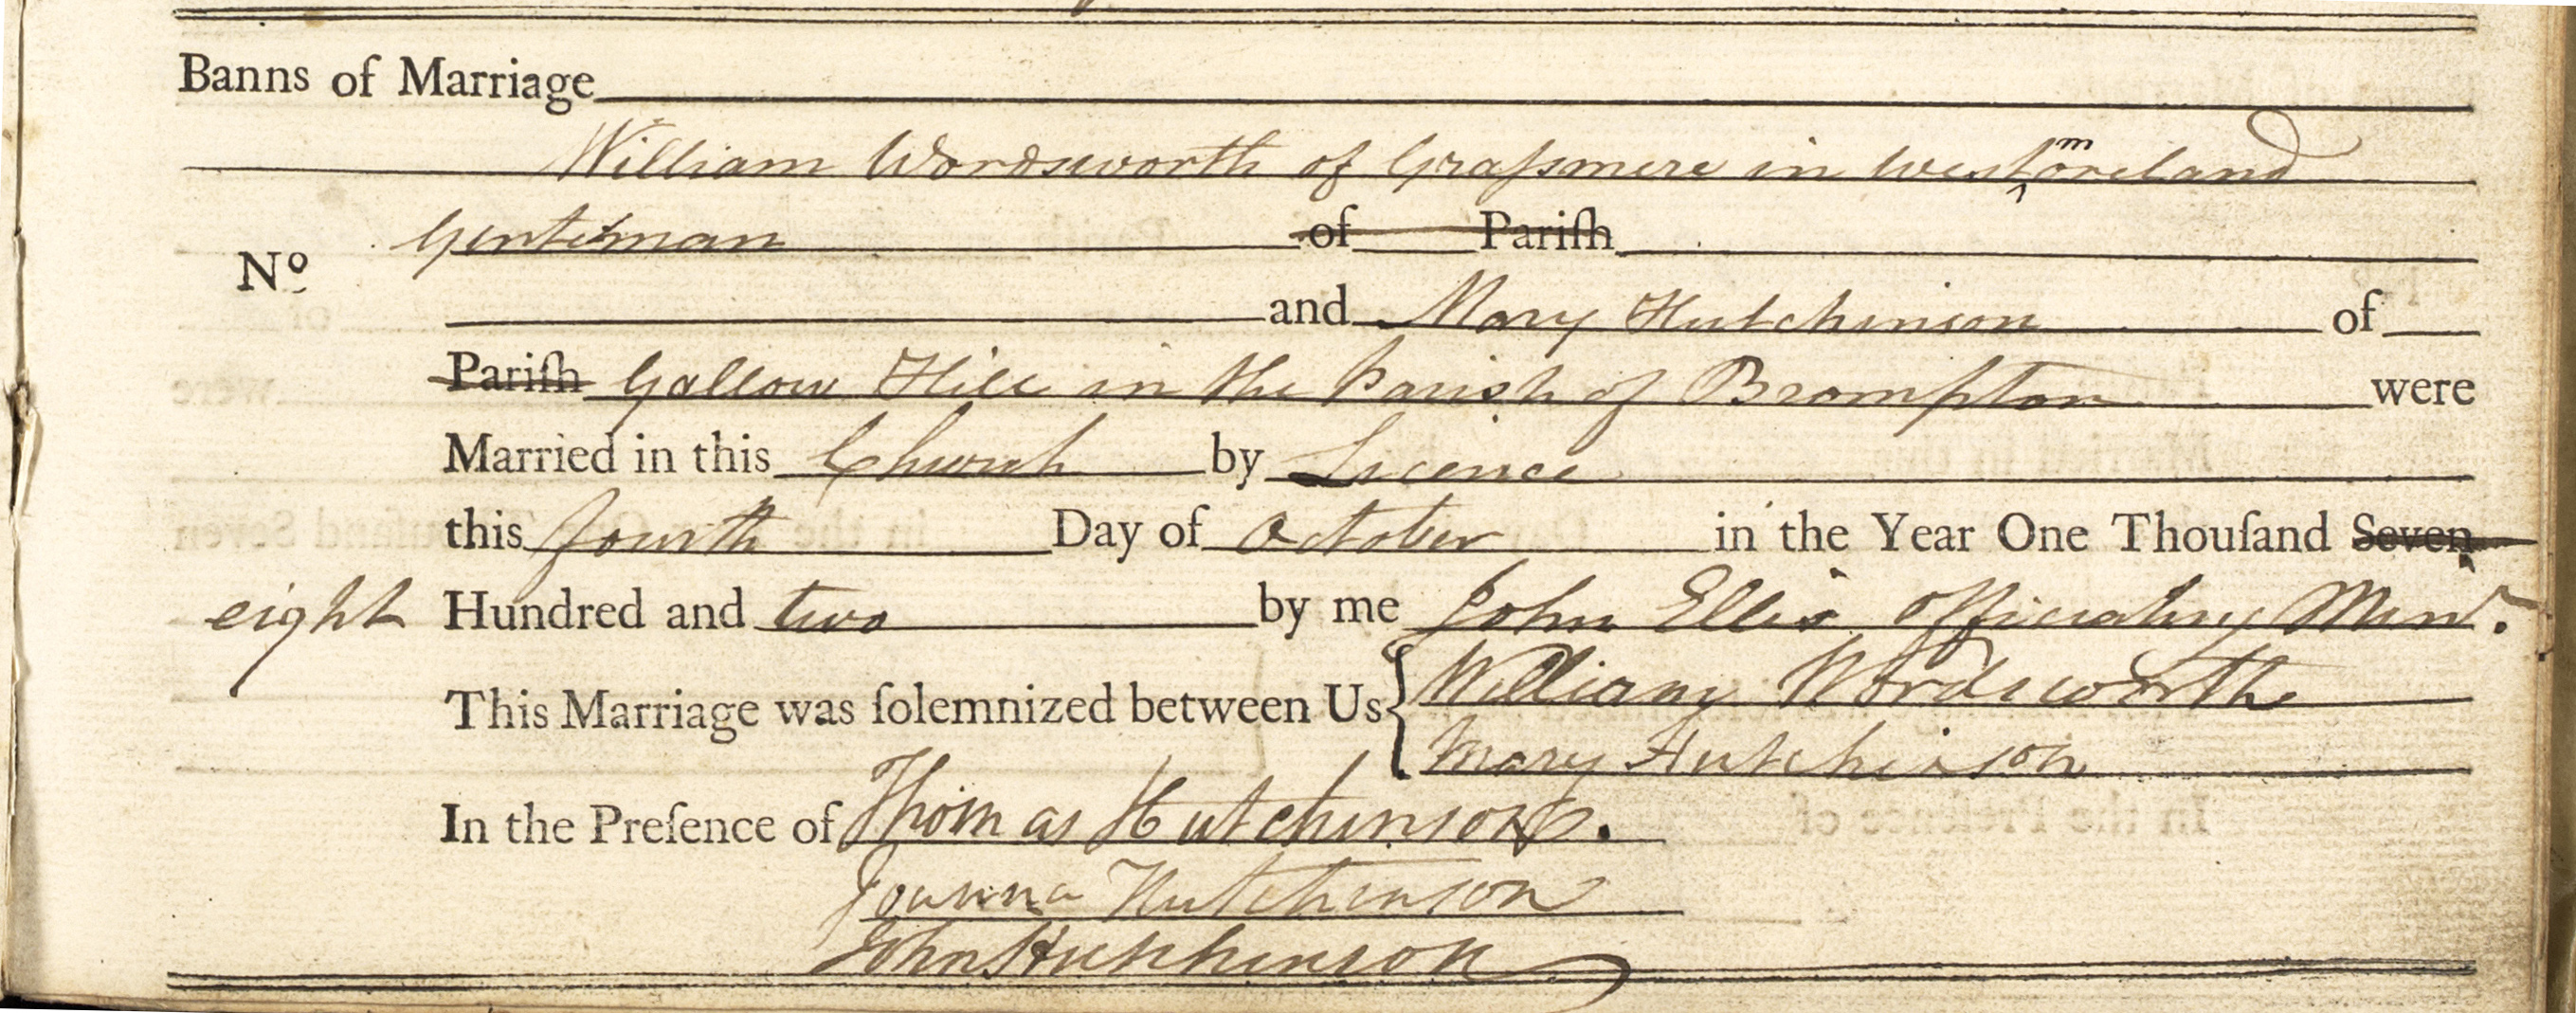 Banns of Marriage
William Wordsworth of Graſsmere in Westmoreland
Gentleman of Pariſh
No and Mary Hutchinson of
Pariſh Gallow Hill in the Parish of Brompton were
Married in this Church by Licence
this fourth Day of October in the Year One Thouſand Seven
eight Hundred and two by me John Ellis Officiating Minr.
This Marriage was ſolemnized between Us William Wordsworth
Mary Hutchinson
In the Preſence of Thomas Hutchinson.
Joanna Hutchinson
John Hutchinson